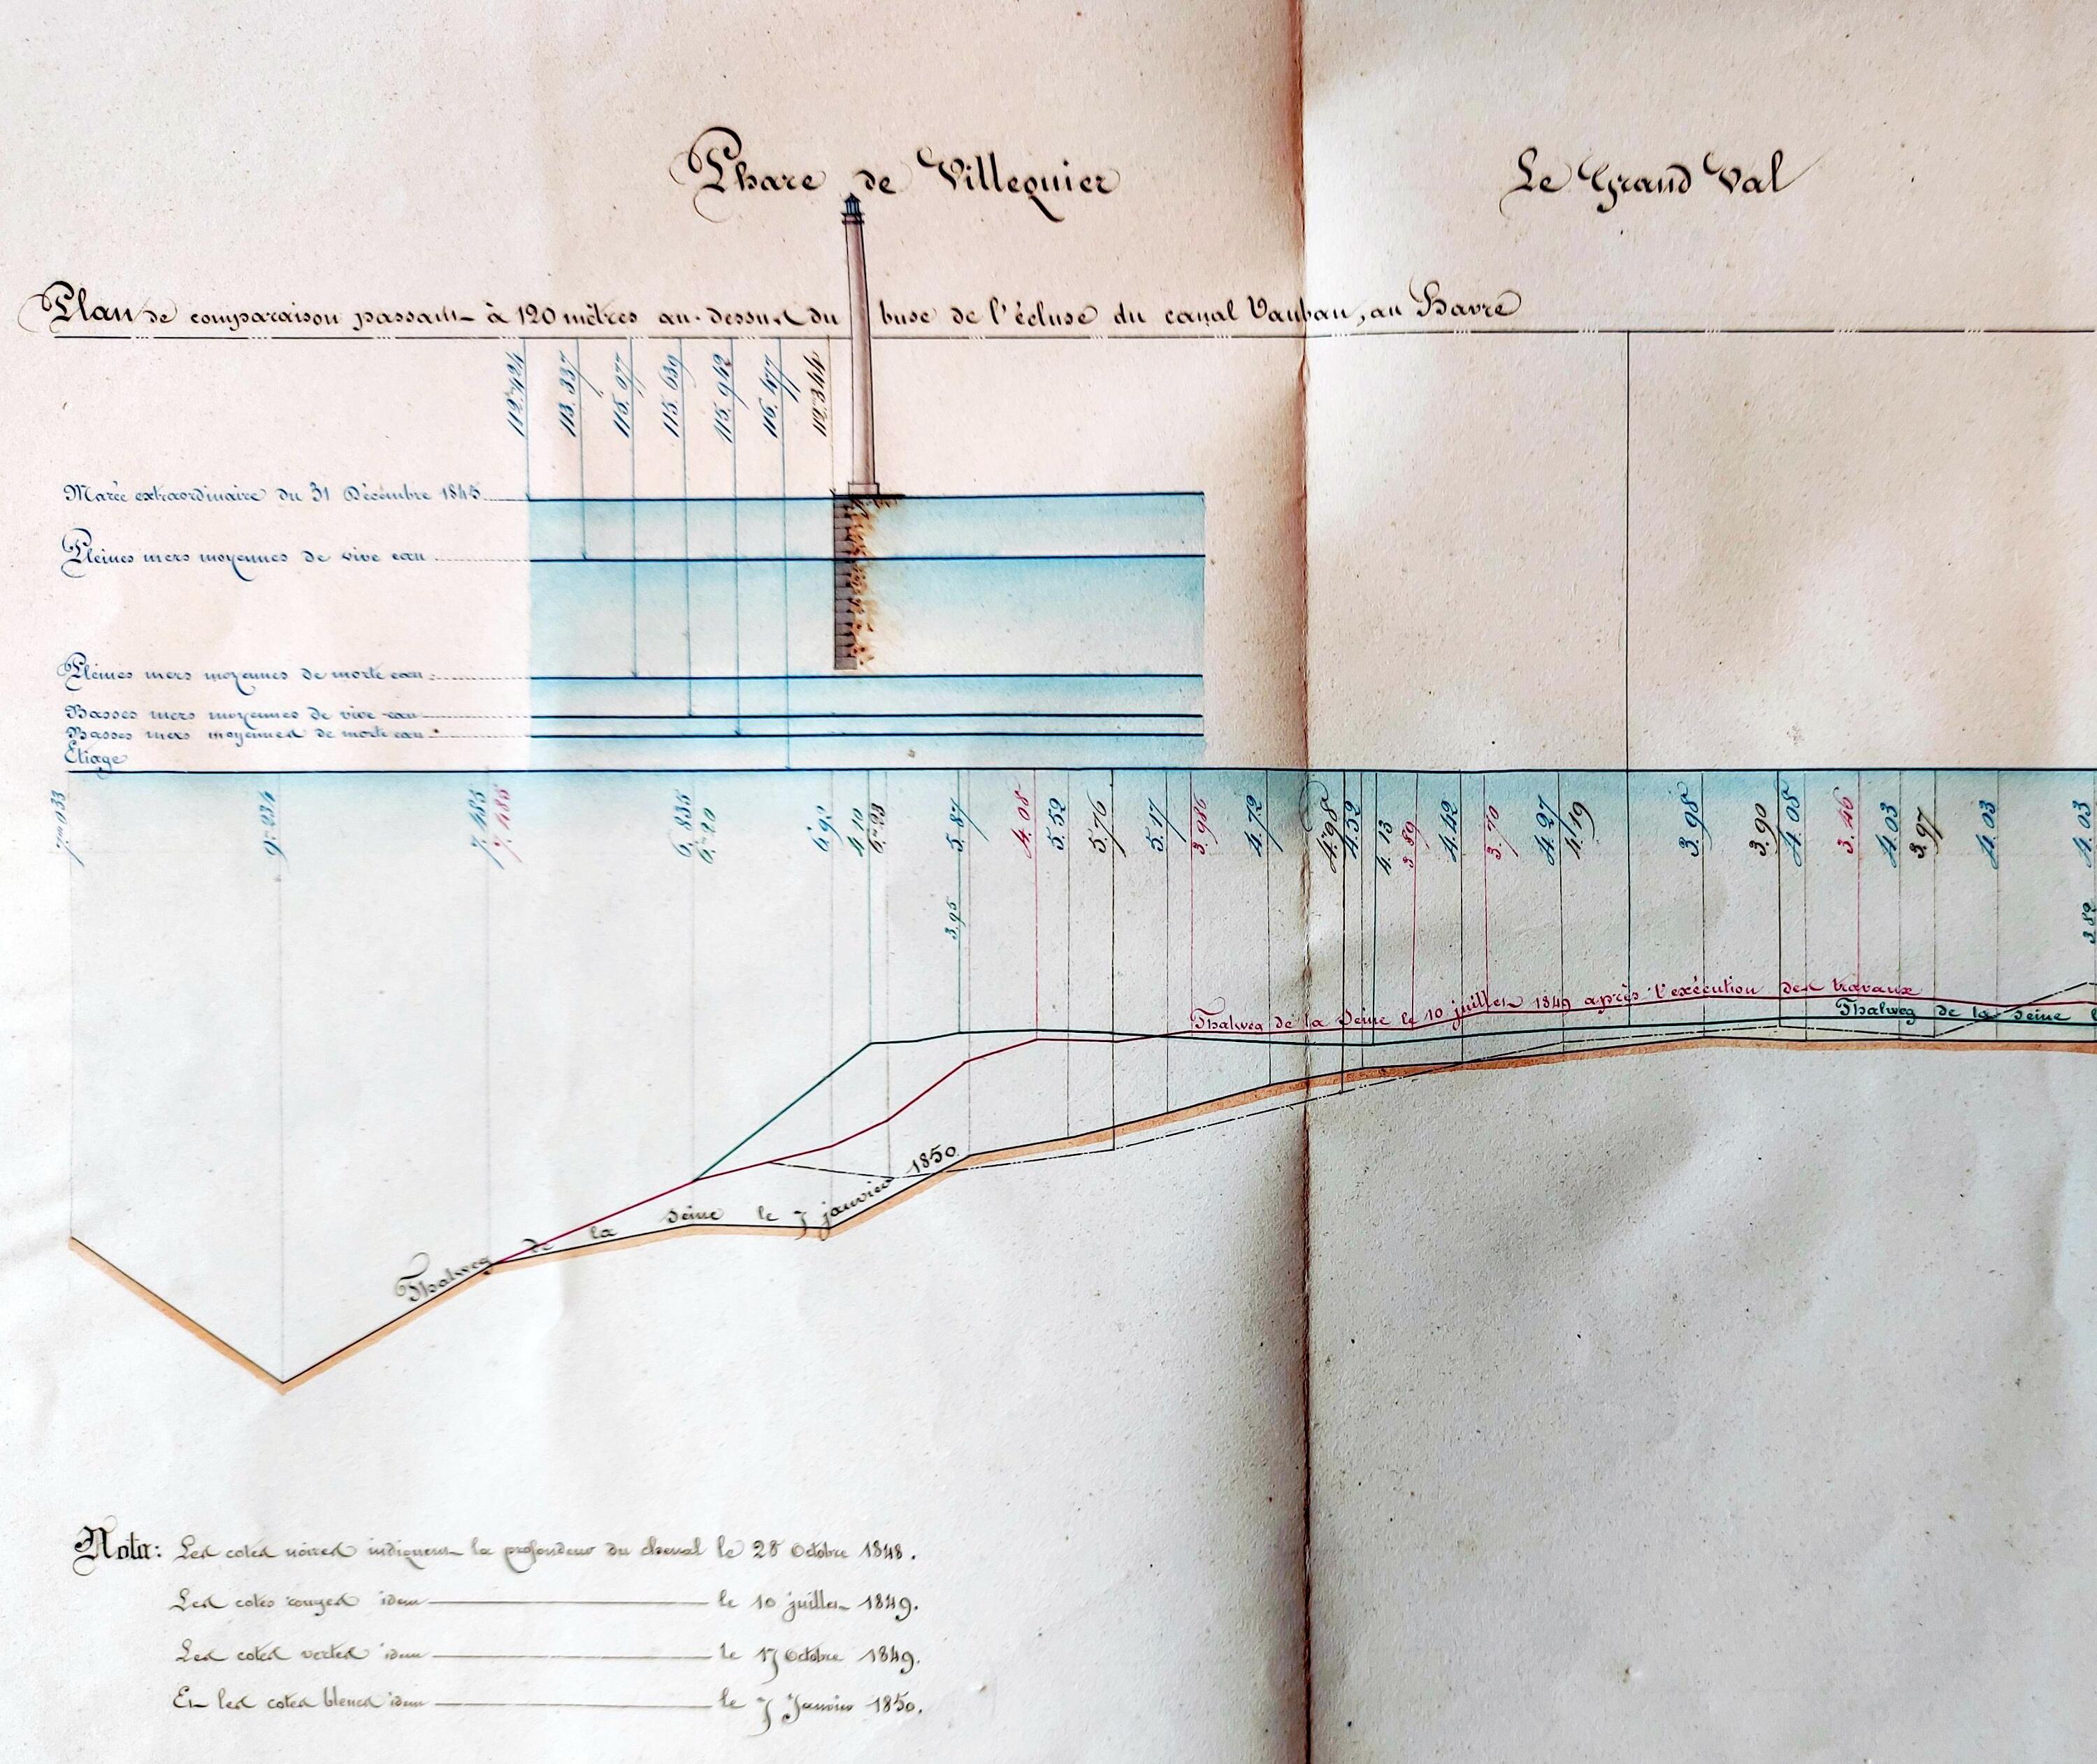 Phare de Villequier
Le Grand Val
Plan de comparaison passant à 120 mètres au-dessus du busc de l'écluse du canal Vauban, au Havre
112.424
113.337
115.077
115.639
115.942
116.477
112.344
Marée extraordinaire du 31 Décembre 1845
Pleines mers moyennes de vive eau
Pleines mers moyennes de morte eau
Basses mers moyennes de vive eau
Basses mers moyennes de morte eau
Etiage
7.033
9.234
7.485
7.485
6.835
6.20
6.92
4.10
6.23
5.87
3.95
4.08
5.52
5.76
5.17
3.986
4.72
4.98
4.52
4.13
3.89
4.42
3.70
4.27
4.19
3.98
3.90
4.08
3.46
4.03
3.97
4.03
4.03
3.82
Thalweg de la Seine le 10 juillet 1849 après l'exécution des travaux
Thalweg de la Seine l
Thalweg de la Seine le 7 janvier 1850
Nota: Les cotes noires indiquent la profondeur du chenal le 28 Octobre 1848.
Les cotes rouges idem le 10 juillet 1849.
Les cotes vertes idem le 17 Octobre 1849.
Et les cotes bleues idem le 7 Janvier 1850.